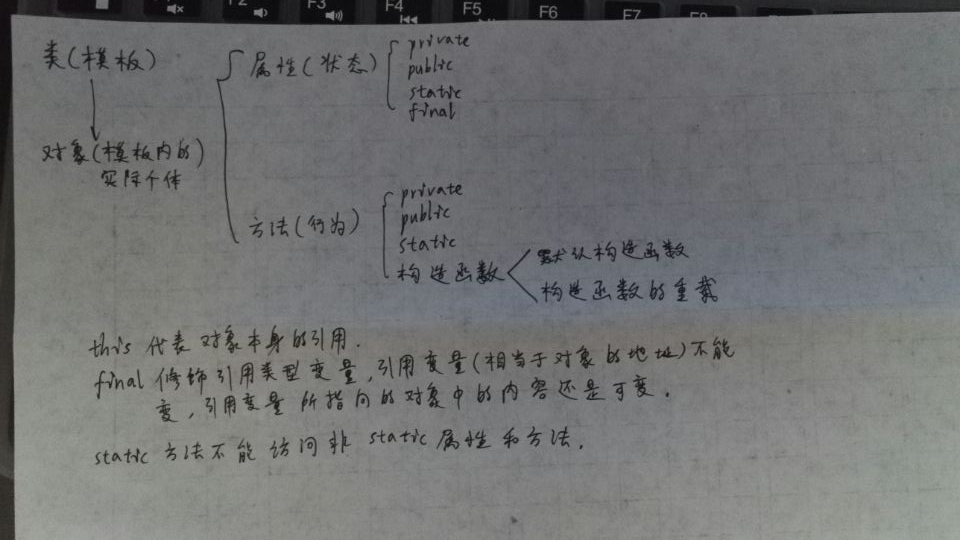 F2
F3
F4
F5
F6
F7
类(模板)
对象(模板内的)
实际个体
属性(状态)
private
public
static
final
方法(行为)
private
public
static
构造函数
默认构造函数
构造函数的重载
this 代表对象本身的引用.
final 修饰引用类型变量,引用变量(相当于对象的地址)不能
变,引用变量所指向的对象中的内容还是可变.
static 方法不能访问非 static 属性和方法.